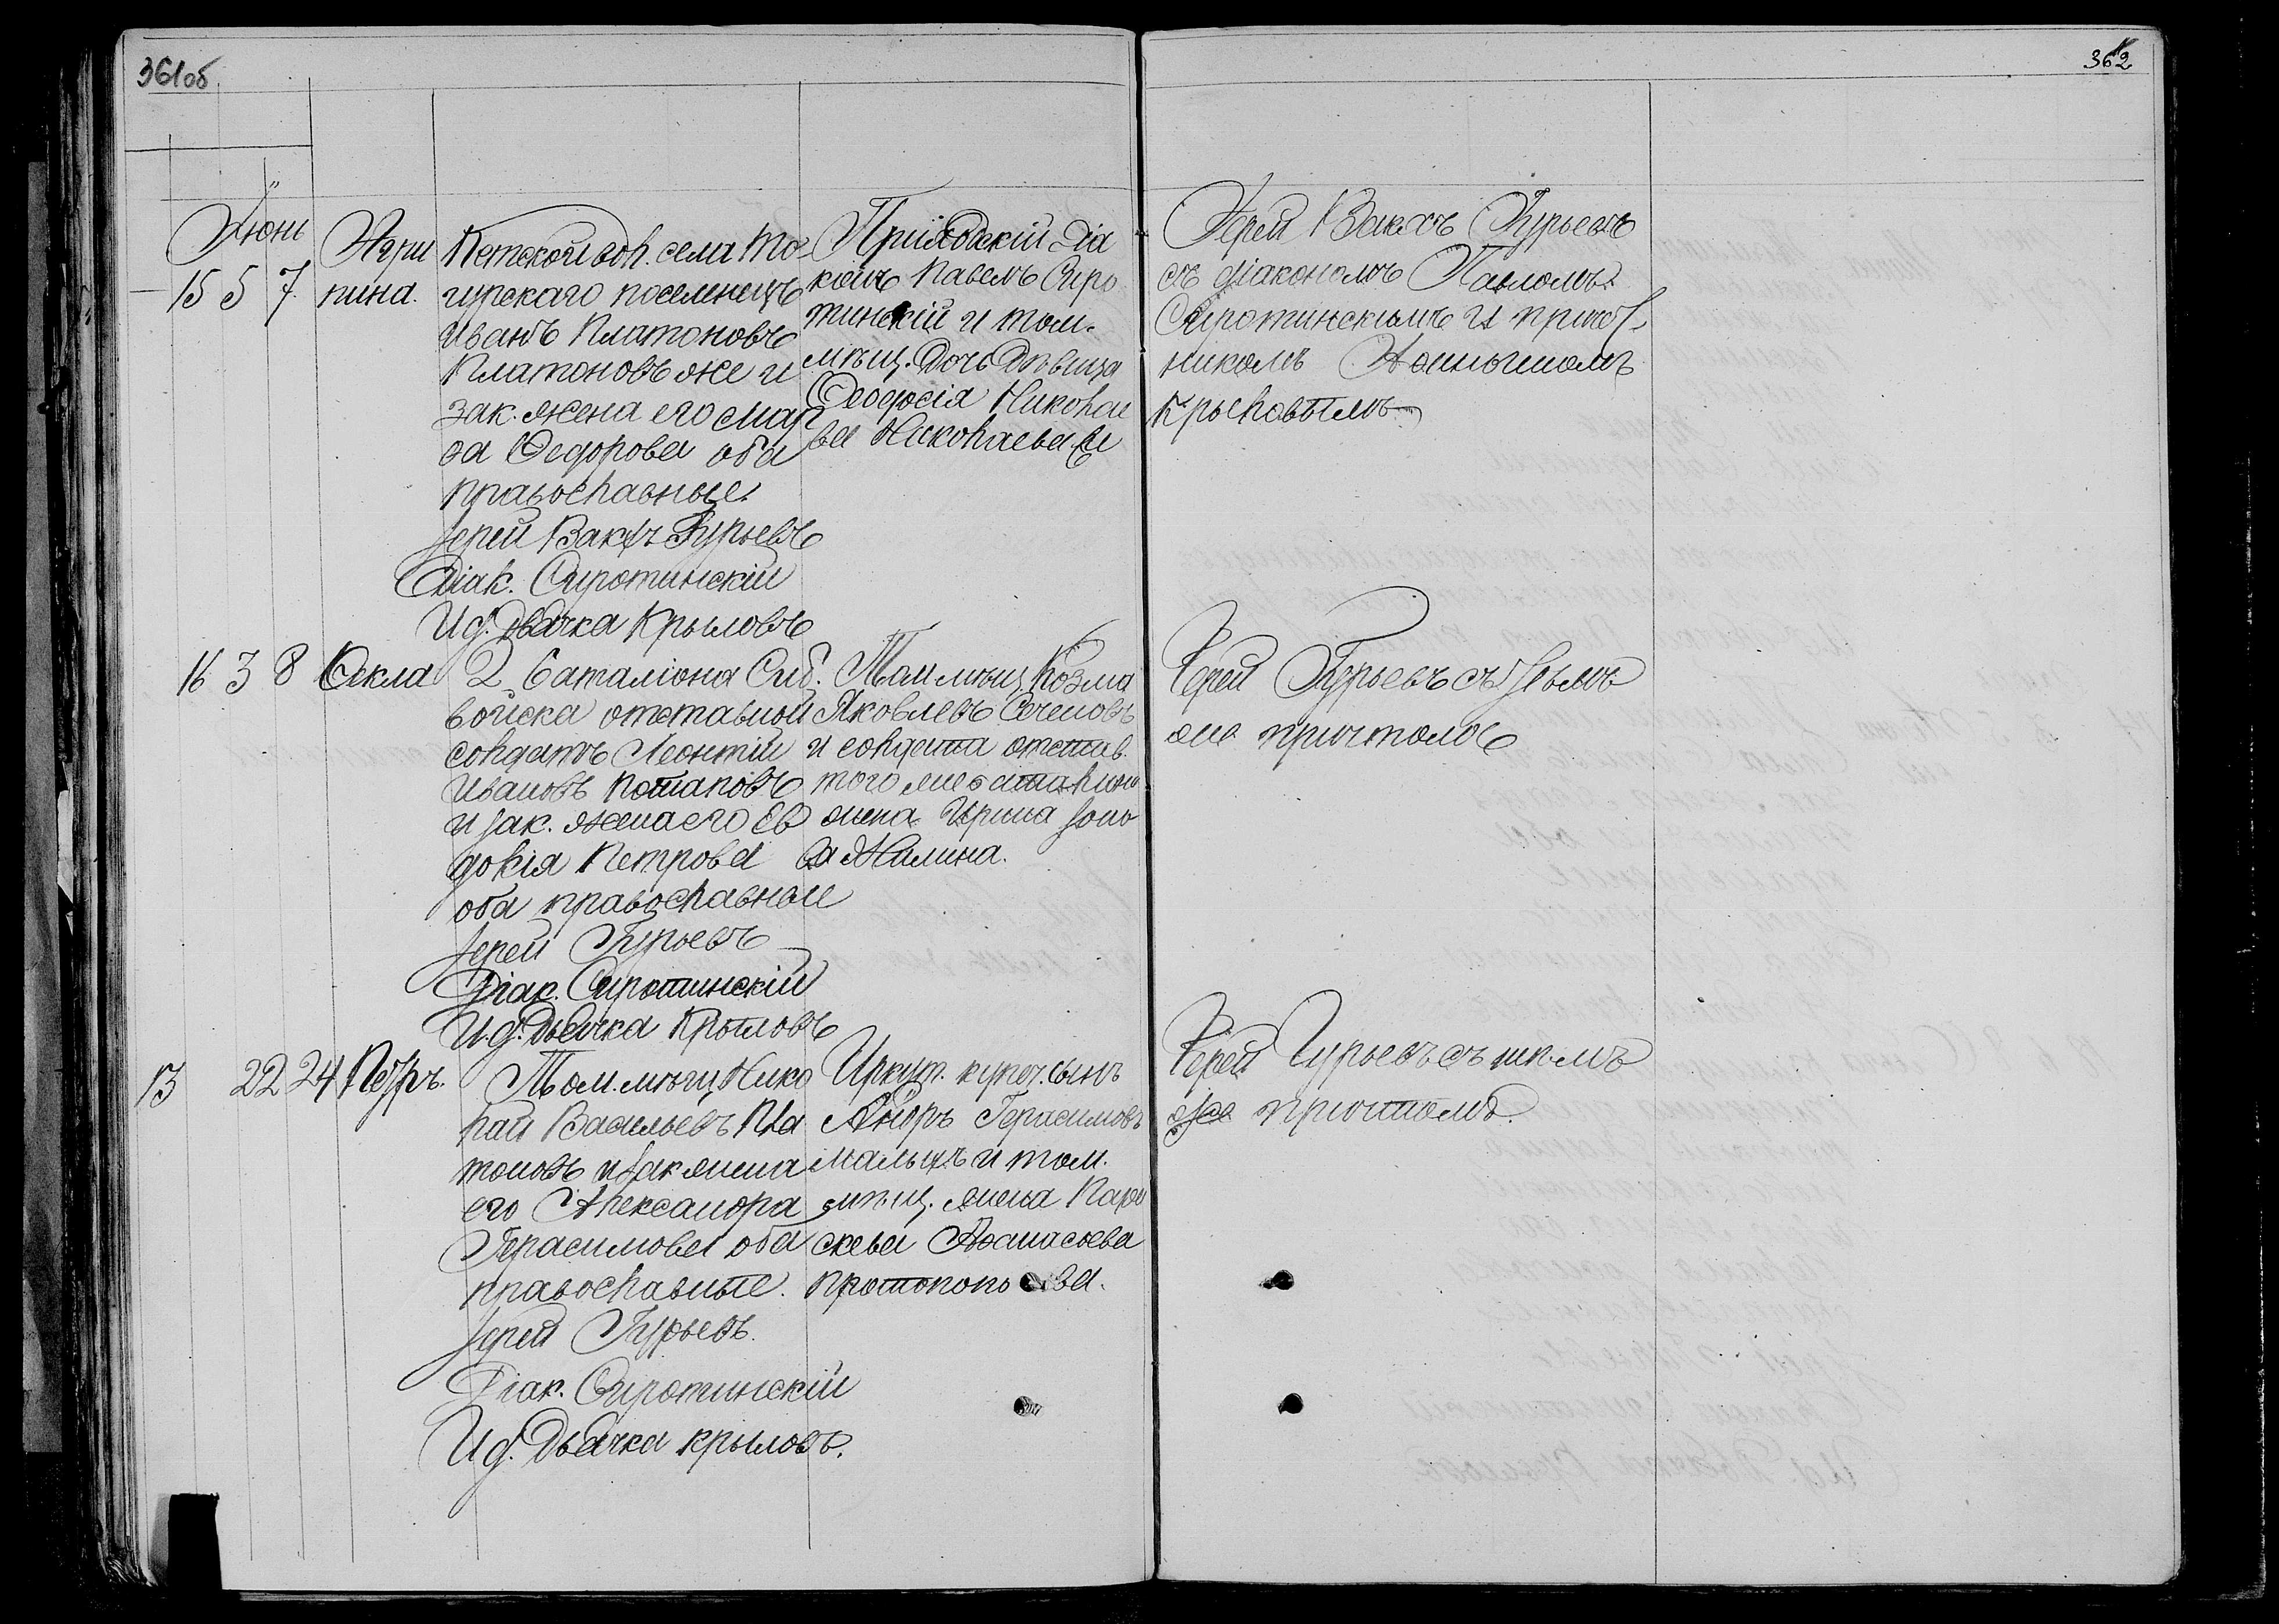 361об
362
Іюнь
15 5 7. Агри
пина.
Кетской вол. села То-
гурскаго поселенецъ
Иванъ Платоновъ
Платоновъ же и
зак. жена его Мар
ѳа Ѳедорова оба
православные.
Іерей Вакхъ Гурьевъ
Діак. Сиротинскій
И д. Дьячка Крыловъ
Приходскій Діа
конъ Павелъ Сиро
тинскій и том.
мѣщ. Дочь Дѣвица
Ѳеодосія Никола
ева Николаева
Іерей Вакхъ Гурьевъ
съ діакономъ Павломъ
Сиротинскимъ и причет
никомъ
Крыловымъ
16 3 8 Ѳекла
2 баталіона Сиб.
войска отставной
солдатъ Леонтій
Ивановъ Потаповъ
и зак. жена его Ев
докія Петрова
оба православные
Іерей Гурьевъ
Діак. Сиротинскій
И. д. Дьячка Крыловъ
Том. мѣщ. Козма
Яковлевъ
и солдата отстав.
того же баталіона
жена Ирина
Малина.
Іерей Гурьевъ съ тѣмъ
же причтомъ
13 22 24 Петръ.
Том. мѣщ Нико
лай Васильевъ Пла
тоновъ и зак жена
его Александра
Герасимова оба
православные.
Іерей Гурьевъ.
Діак. Сиротинскій
И д. Дьячка Крыловъ.
Иркут. купеч. сынъ
Герасимовъ
Малыхъ и том.
мѣщ. жена Пара
скева Аѳанасьева
Протопопова.
Іерей Гурьевъ съ тѣмъ
же причтомъ.